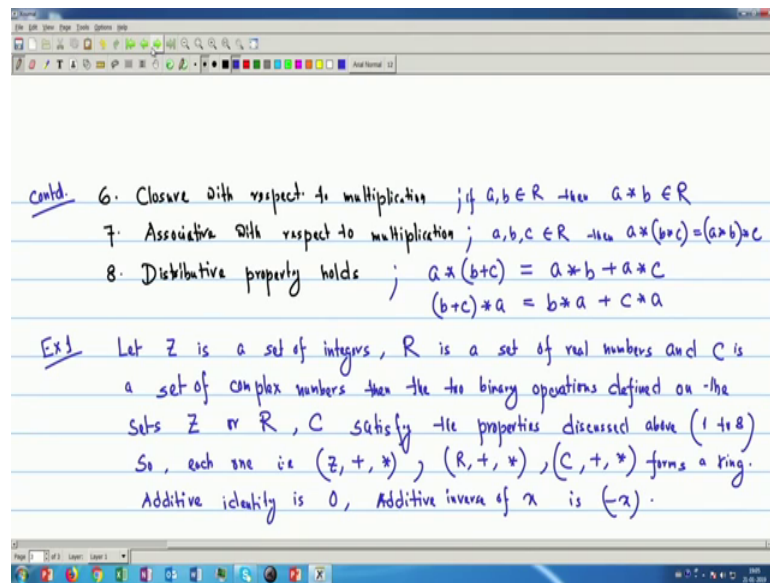 Journal
File Edit View Page Tools Options Help
Arial Normal 12
Contd. 6. Closure with respect to multiplication ; if a, b ∈ R then a * b ∈ R
7. Associative with respect to multiplication ; a, b, c ∈ R then a * (b * c) = (a * b) * c
8. Distributive property holds ; a * (b+c) = a * b + a * c
(b+c) * a = b * a + c * a
Ex 1 Let Z is a set of integers, R is a set of real numbers and C is
a set of complex numbers then the two binary operations defined on the
sets Z or R, C satisfy the properties discussed above (1 to 8)
So, each one i.e (Z, +, *), (R, +, *), (C, +, *) forms a ring.
Additive identity is 0, Additive inverse of x is (-x).
Page 3 of 3 Layer: Layer 1